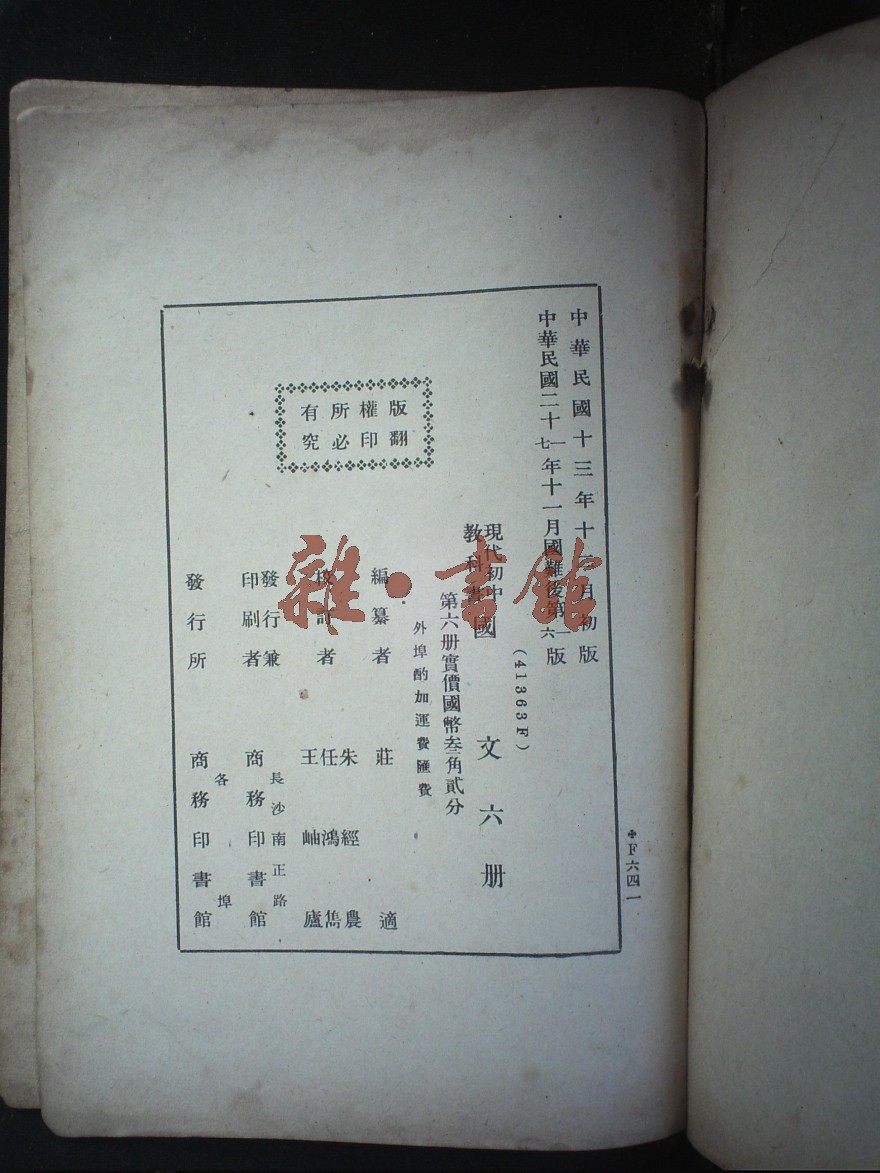 中華民國十三年十一月初版
中華民國二十一年十一月國難後第一版
七 六
(41363F)
現代初中
教科書
國文六册
第六册實價國幣叁角貳分
外埠酌加運費匯費
編纂者 莊適
校訂者 朱經農
任鴻雋
王岫廬
長沙南正路
發行兼
印刷者 商務印書館
各埠
發行所 商務印書館
版權所有
翻印必究
F六四一
雜·書館